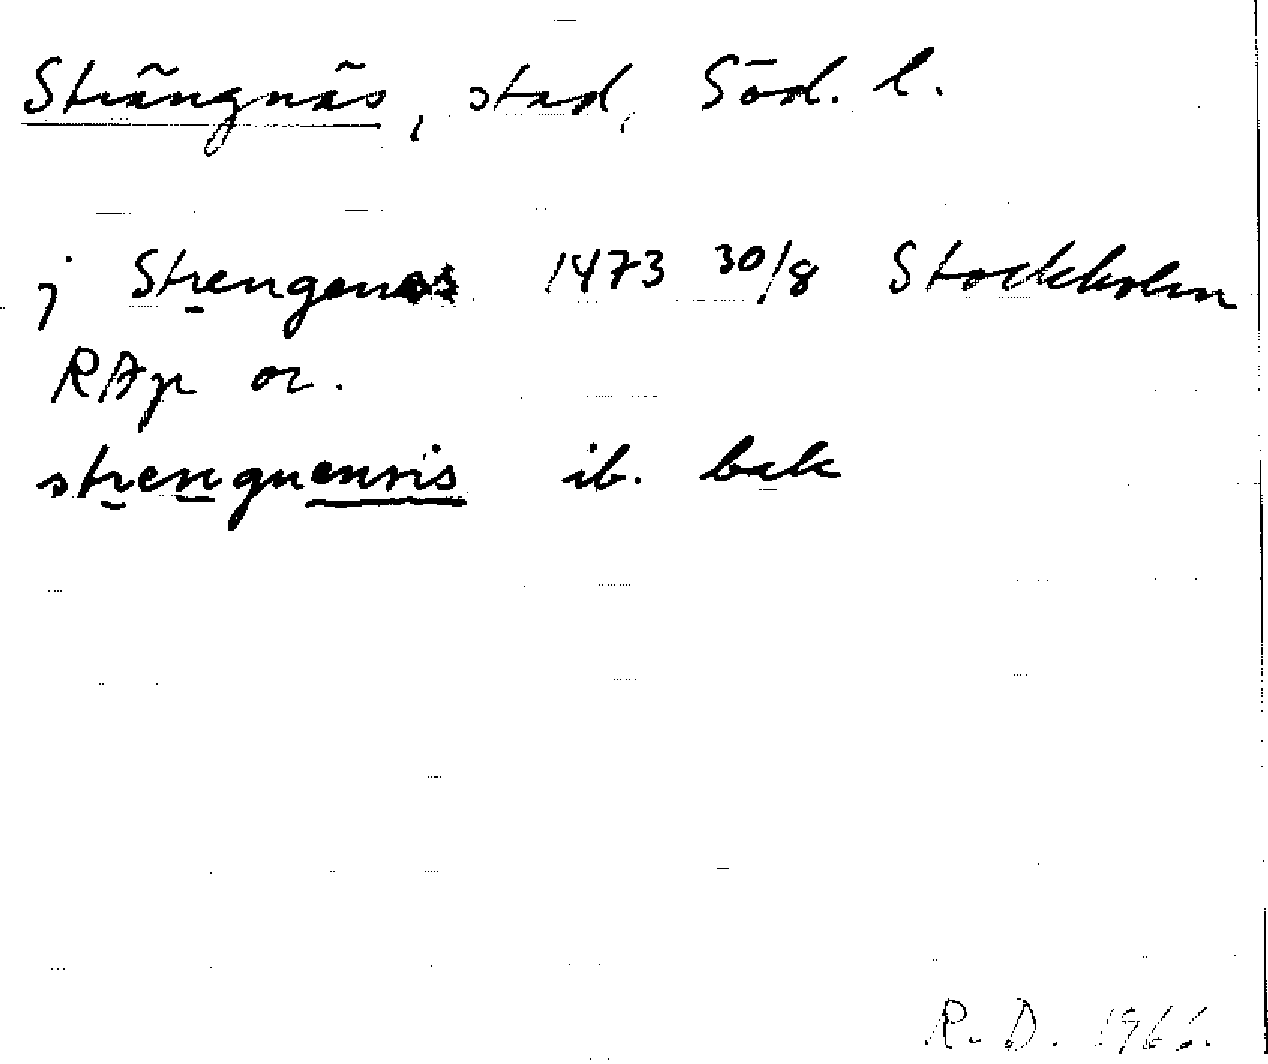 Strängnäs, stad, Söd. l.
j Strengenes 1473 30/8 Stockholm
RAp or.
strengnensis ib. bak
R. D. 1966.